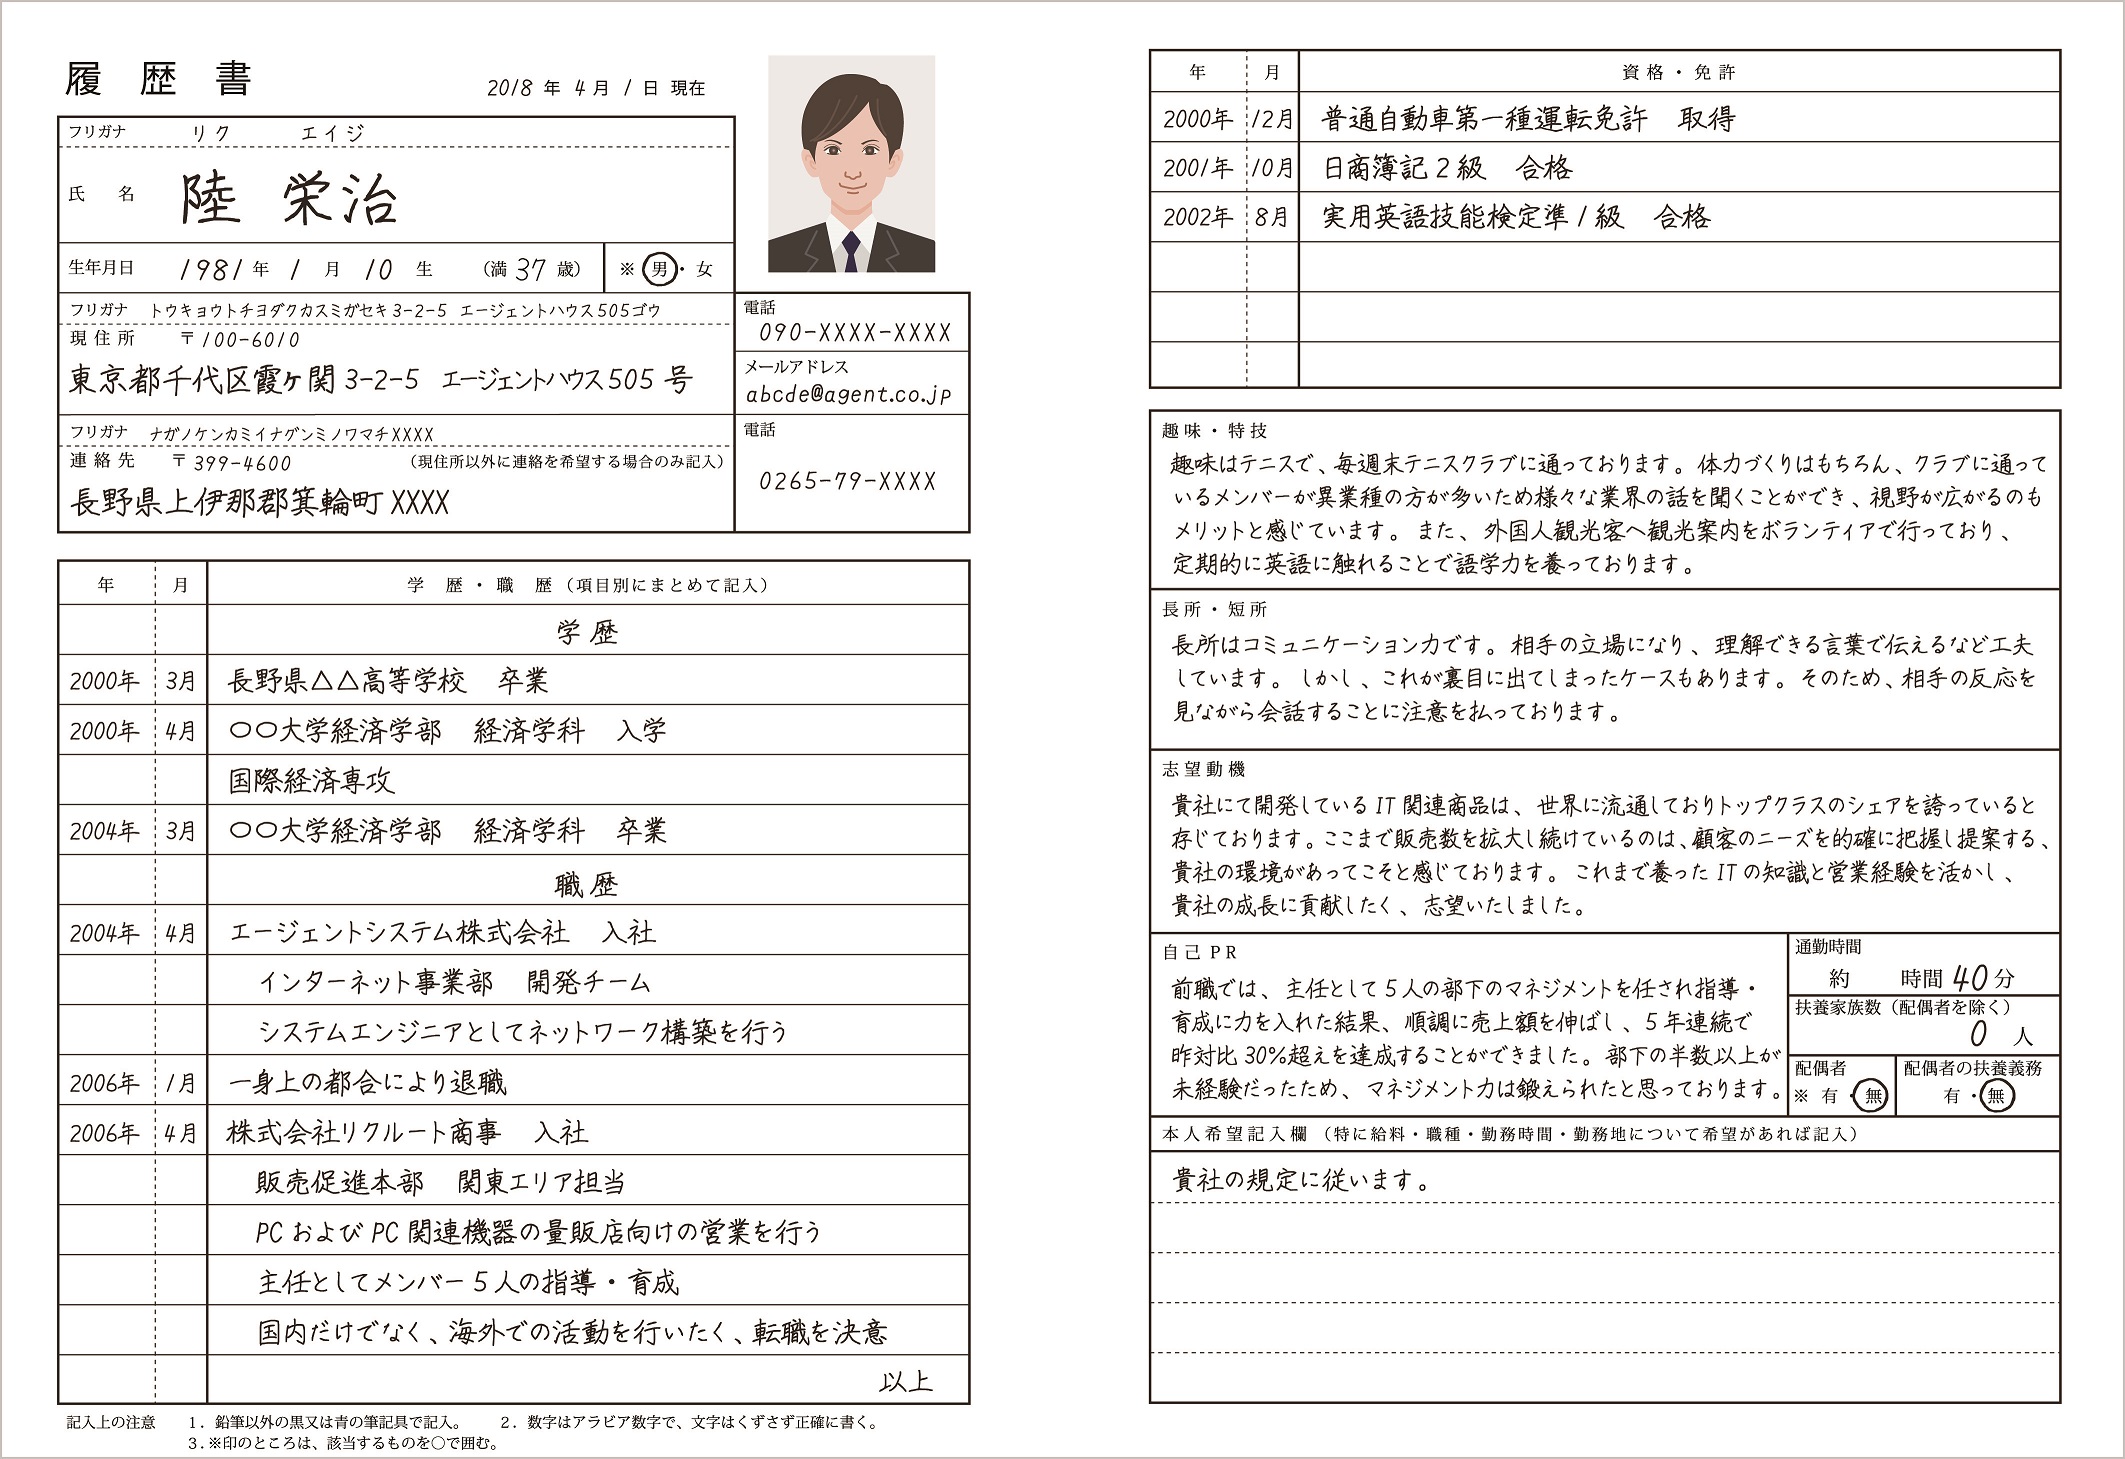 履歴書
2018 年 4 月 1 日 現在
フリガナ リク エイジ
氏 名 陸 栄治
生年月日 1981 年 1 月 10 生 （満 37 歳） ※ 男・女
フリガナ トウキョウトチヨダクカスミガセキ 3-2-5 エージェントハウス 505ゴウ
現住所 〒100-6010
東京都千代区霞ヶ関 3-2-5 エージェントハウス 505 号
電話
090-XXXX-XXXX
メールアドレス
abcde@agent.co.jp
フリガナ ナガノケンカミイナグンミノワマチXXXX
連絡先 〒399-4600 （現住所以外に連絡を希望する場合のみ記入）
長野県上伊那郡箕輪町 XXXX
電話
0265-79-XXXX
年 月 学 歴 ・ 職 歴（項目別にまとめて記入）
学歴
2000年 3月 長野県△△高等学校 卒業
2000年 4月 〇〇大学経済学部 経済学科 入学
国際経済専攻
2004年 3月 〇〇大学経済学部 経済学科 卒業
職歴
2004年 4月 エージェントシステム株式会社 入社
インターネット事業部 開発チーム
システムエンジニアとしてネットワーク構築を行う
2006年 1月 一身上の都合により退職
2006年 4月 株式会社リクルート商事 入社
販売促進本部 関東エリア担当
PC および PC 関連機器の量販店向けの営業を行う
主任としてメンバー 5 人の指導・育成
国内だけでなく、海外での活動を行いたく、転職を決意
以上
記入上の注意 1．鉛筆以外の黒又は青の筆記具で記入。 2．数字はアラビア数字で、文字はくずさず正確に書く。
3.※印のところは、該当するものを〇で囲む。
年 月 資格・免許
2000年 12月 普通自動車第一種運転免許 取得
2001年 10月 日商簿記 2 級 合格
2002年 8月 実用英語技能検定準 1 級 合格
趣味・特技
趣味はテニスで、毎週末テニスクラブに通っております。体力づくりはもちろん、クラブに通って
いるメンバーが異業種の方が多いため様々な業界の話を聞くことができ、視野が広がるのも
メリットと感じています。また、外国人観光客へ観光案内をボランティアで行っており、
定期的に英語に触れることで語学力を養っております。
長所・短所
長所はコミュニケーション力です。相手の立場になり、理解できる言葉で伝えるなど工夫
しています。しかし、これが裏目に出てしまったケースもあります。そのため、相手の反応を
見ながら会話することに注意を払っております。
志望動機
貴社にて開発している IT 関連商品は、世界に流通しておりトップクラスのシェアを誇っていると
存じております。ここまで販売数を拡大し続けているのは、顧客のニーズを的確に把握し提案する、
貴社の環境があってこそと感じております。これまで養った IT の知識と営業経験を活かし、
貴社の成長に貢献したく、志望いたしました。
自己 PR
前職では、主任として 5 人の部下のマネジメントを任され指導・
育成に力を入れた結果、順調に売上額を伸ばし、5 年連続で
昨対比 30%超えを達成することができました。部下の半数以上が
未経験だったため、マネジメント力は鍛えられたと思っております。
通勤時間
約 時間 40 分
扶養家族数（配偶者を除く）
0 人
配偶者
※ 有・無
配偶者の扶養義務
有・無
本人希望記入欄 （特に給料・職種・勤務時間・勤務地について希望があれば記入）
貴社の規定に従います。